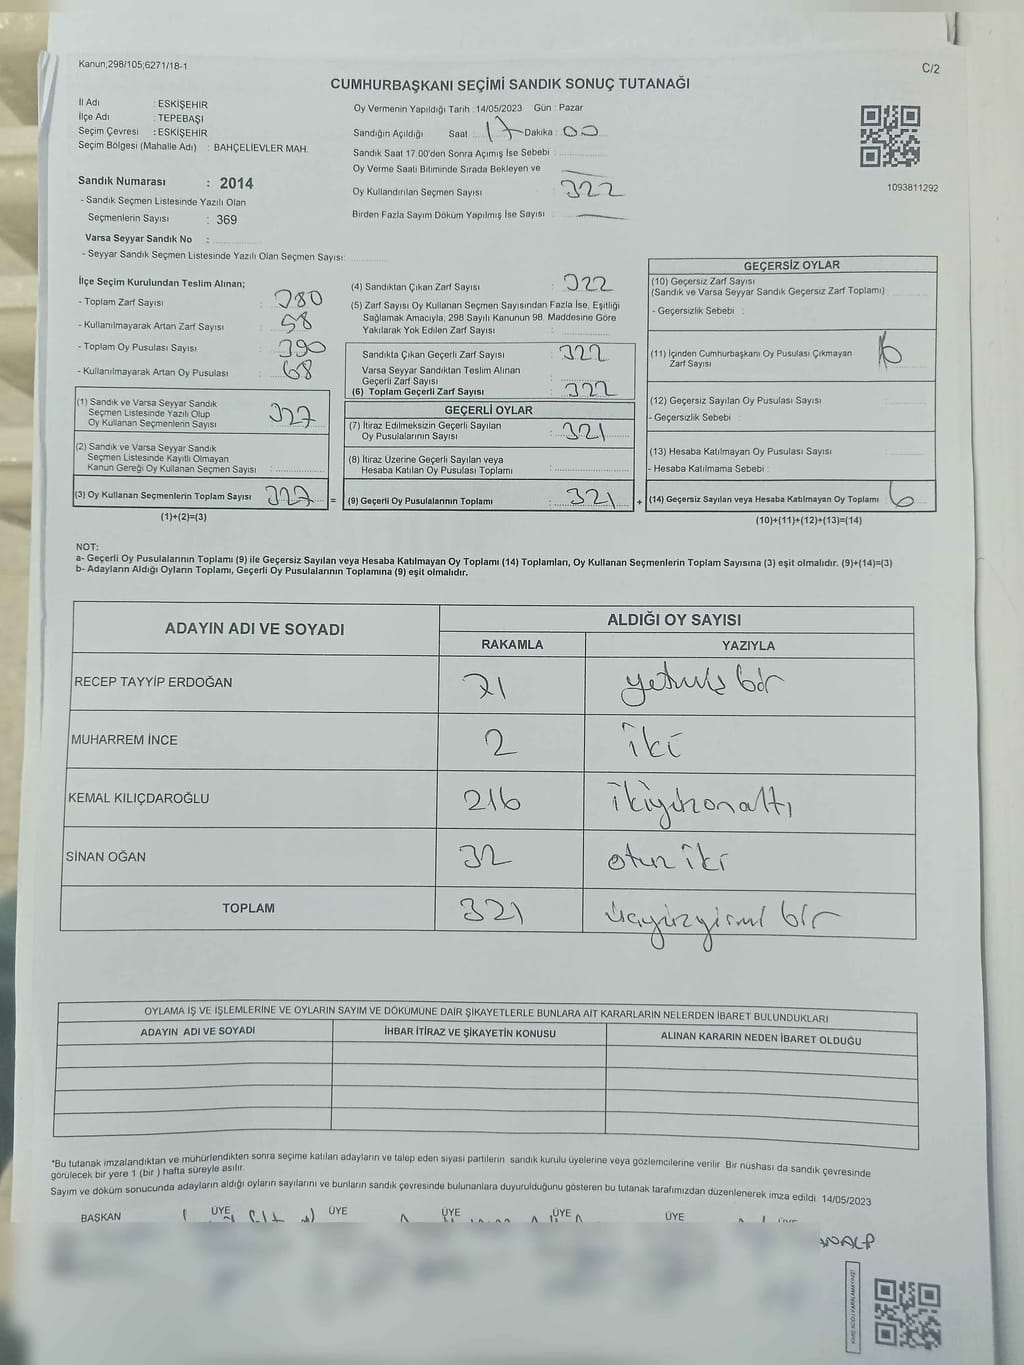 Kanun;298/105;6271/18-1
C/2
CUMHURBAŞKANI SEÇİMİ SANDIK SONUÇ TUTANAĞI
İl Adı : ESKİŞEHİR
İlçe Adı : TEPEBAŞI
Seçim Çevresi : ESKİŞEHİR
Seçim Bölgesi (Mahalle Adı) : BAHÇELİEVLER MAH.
Sandık Numarası : 2014
- Sandık Seçmen Listesinde Yazılı Olan
Seçmenlerin Sayısı : 369
Varsa Seyyar Sandık No :
- Seyyar Sandık Seçmen Listesinde Yazılı Olan Seçmen Sayısı:
Oy Vermenin Yapıldığı Tarih : 14/05/2023 Gün : Pazar
Sandığın Açıldığı Saat : 17 Dakika : 00
Sandık Saat 17:00'den Sonra Açımış İse Sebebi :
Oy Verme Saati Bitiminde Sırada Bekleyen ve
Oy Kullandırılan Seçmen Sayısı 322
Birden Fazla Sayım Döküm Yapılmış İse Sayısı :
1093811292
İlçe Seçim Kurulundan Teslim Alınan;
- Toplam Zarf Sayısı : 380
- Kullanılmayarak Artan Zarf Sayısı : 58
- Toplam Oy Pusulası Sayısı : 390
- Kullanılmayarak Artan Oy Pusulası : 68
(1) Sandık ve Varsa Seyyar Sandık
Seçmen Listesinde Yazılı Olup
Oy Kullanan Seçmenlerin Sayısı : 327
(2) Sandık ve Varsa Seyyar Sandık
Seçmen Listesinde Kayıtlı Olmayan
Kanun Gereği Oy Kullanan Seçmen Sayısı :
(3) Oy Kullanan Seçmenlerin Toplam Sayısı 327 =
(1)+(2)=(3)
(4) Sandıktan Çıkan Zarf Sayısı : 322
(5) Zarf Sayısı Oy Kullanan Seçmen Sayısından Fazla İse, Eşitliği
Sağlamak Amacıyla; 298 Sayılı Kanunun 98. Maddesine Göre
Yakılarak Yok Edilen Zarf Sayısı :
Sandıkta Çıkan Geçerli Zarf Sayısı : 322
Varsa Seyyar Sandıktan Teslim Alınan
Geçerli Zarf Sayısı :
(6) Toplam Geçerli Zarf Sayısı : 322
GEÇERLİ OYLAR
(7) İtiraz Edilmeksizin Geçerli Sayılan
Oy Pusulalarının Sayısı : 321
(8) İtiraz Üzerine Geçerli Sayılan veya
Hesaba Katılan Oy Pusulası Toplamı :
(9) Geçerli Oy Pusulalarının Toplamı : 321 +
GEÇERSİZ OYLAR
(10) Geçersiz Zarf Sayısı
(Sandık ve Varsa Seyyar Sandık Geçersiz Zarf Toplamı) :
- Geçersizlik Sebebi :
(11) İçinden Cumhurbaşkanı Oy Pusulası Çıkmayan
Zarf Sayısı
(12) Geçersiz Sayılan Oy Pusulası Sayısı
- Geçersizlik Sebebi :
(13) Hesaba Katılmayan Oy Pusulası Sayısı
- Hesaba Katılmama Sebebi :
(14) Geçersiz Sayılan veya Hesaba Katılmayan Oy Toplamı : 6
(10)+(11)+(12)+(13)=(14)
NOT:
a- Geçerli Oy Pusulalarının Toplamı (9) ile Geçersiz Sayılan veya Hesaba Katılmayan Oy Toplamı (14) Toplamları, Oy Kullanan Seçmenlerin Toplam Sayısına (3) eşit olmalıdır. (9)+(14)=(3)
b- Adayların Aldığı Oyların Toplamı, Geçerli Oy Pusulalarının Toplamına (9) eşit olmalıdır.
ADAYIN ADI VE SOYADI
ALDIĞI OY SAYISI
RAKAMLA YAZIYLA
RECEP TAYYİP ERDOĞAN 71 yetmiş bir
MUHARREM İNCE 2 iki
KEMAL KILIÇDAROĞLU 216 ikiyüzonaltı
SİNAN OĞAN 32 otuz iki
TOPLAM 321 üçyüzyirmi bir
OYLAMA İŞ VE İŞLEMLERİNE VE OYLARIN SAYIM VE DÖKÜMÜNE DAİR ŞİKAYETLERLE BUNLARA AİT KARARLARIN NELERDEN İBARET BULUNDUKLARI
ADAYIN ADI VE SOYADI İHBAR İTİRAZ VE ŞİKAYETİN KONUSU ALINAN KARARIN NEDEN İBARET OLDUĞU
*Bu tutanak imzalandıktan ve mühürlendikten sonra seçime katılan adayların ve talep eden siyasi partilerin sandık kurulu üyelerine veya gözlemcilerine verilir. Bir nüshası da sandık çevresinde
görülecek bir yere 1 (bir ) hafta süreyle asılır.
Sayım ve döküm sonucunda adayların aldığı oyların sayılarını ve bunların sandık çevresinde bulunanlara duyurulduğunu gösteren bu tutanak tarafımızdan düzenlenerek imza edildi. 14/05/2023
BAŞKAN ÜYE ÜYE ÜYE ÜYE ÜYE ÜYE